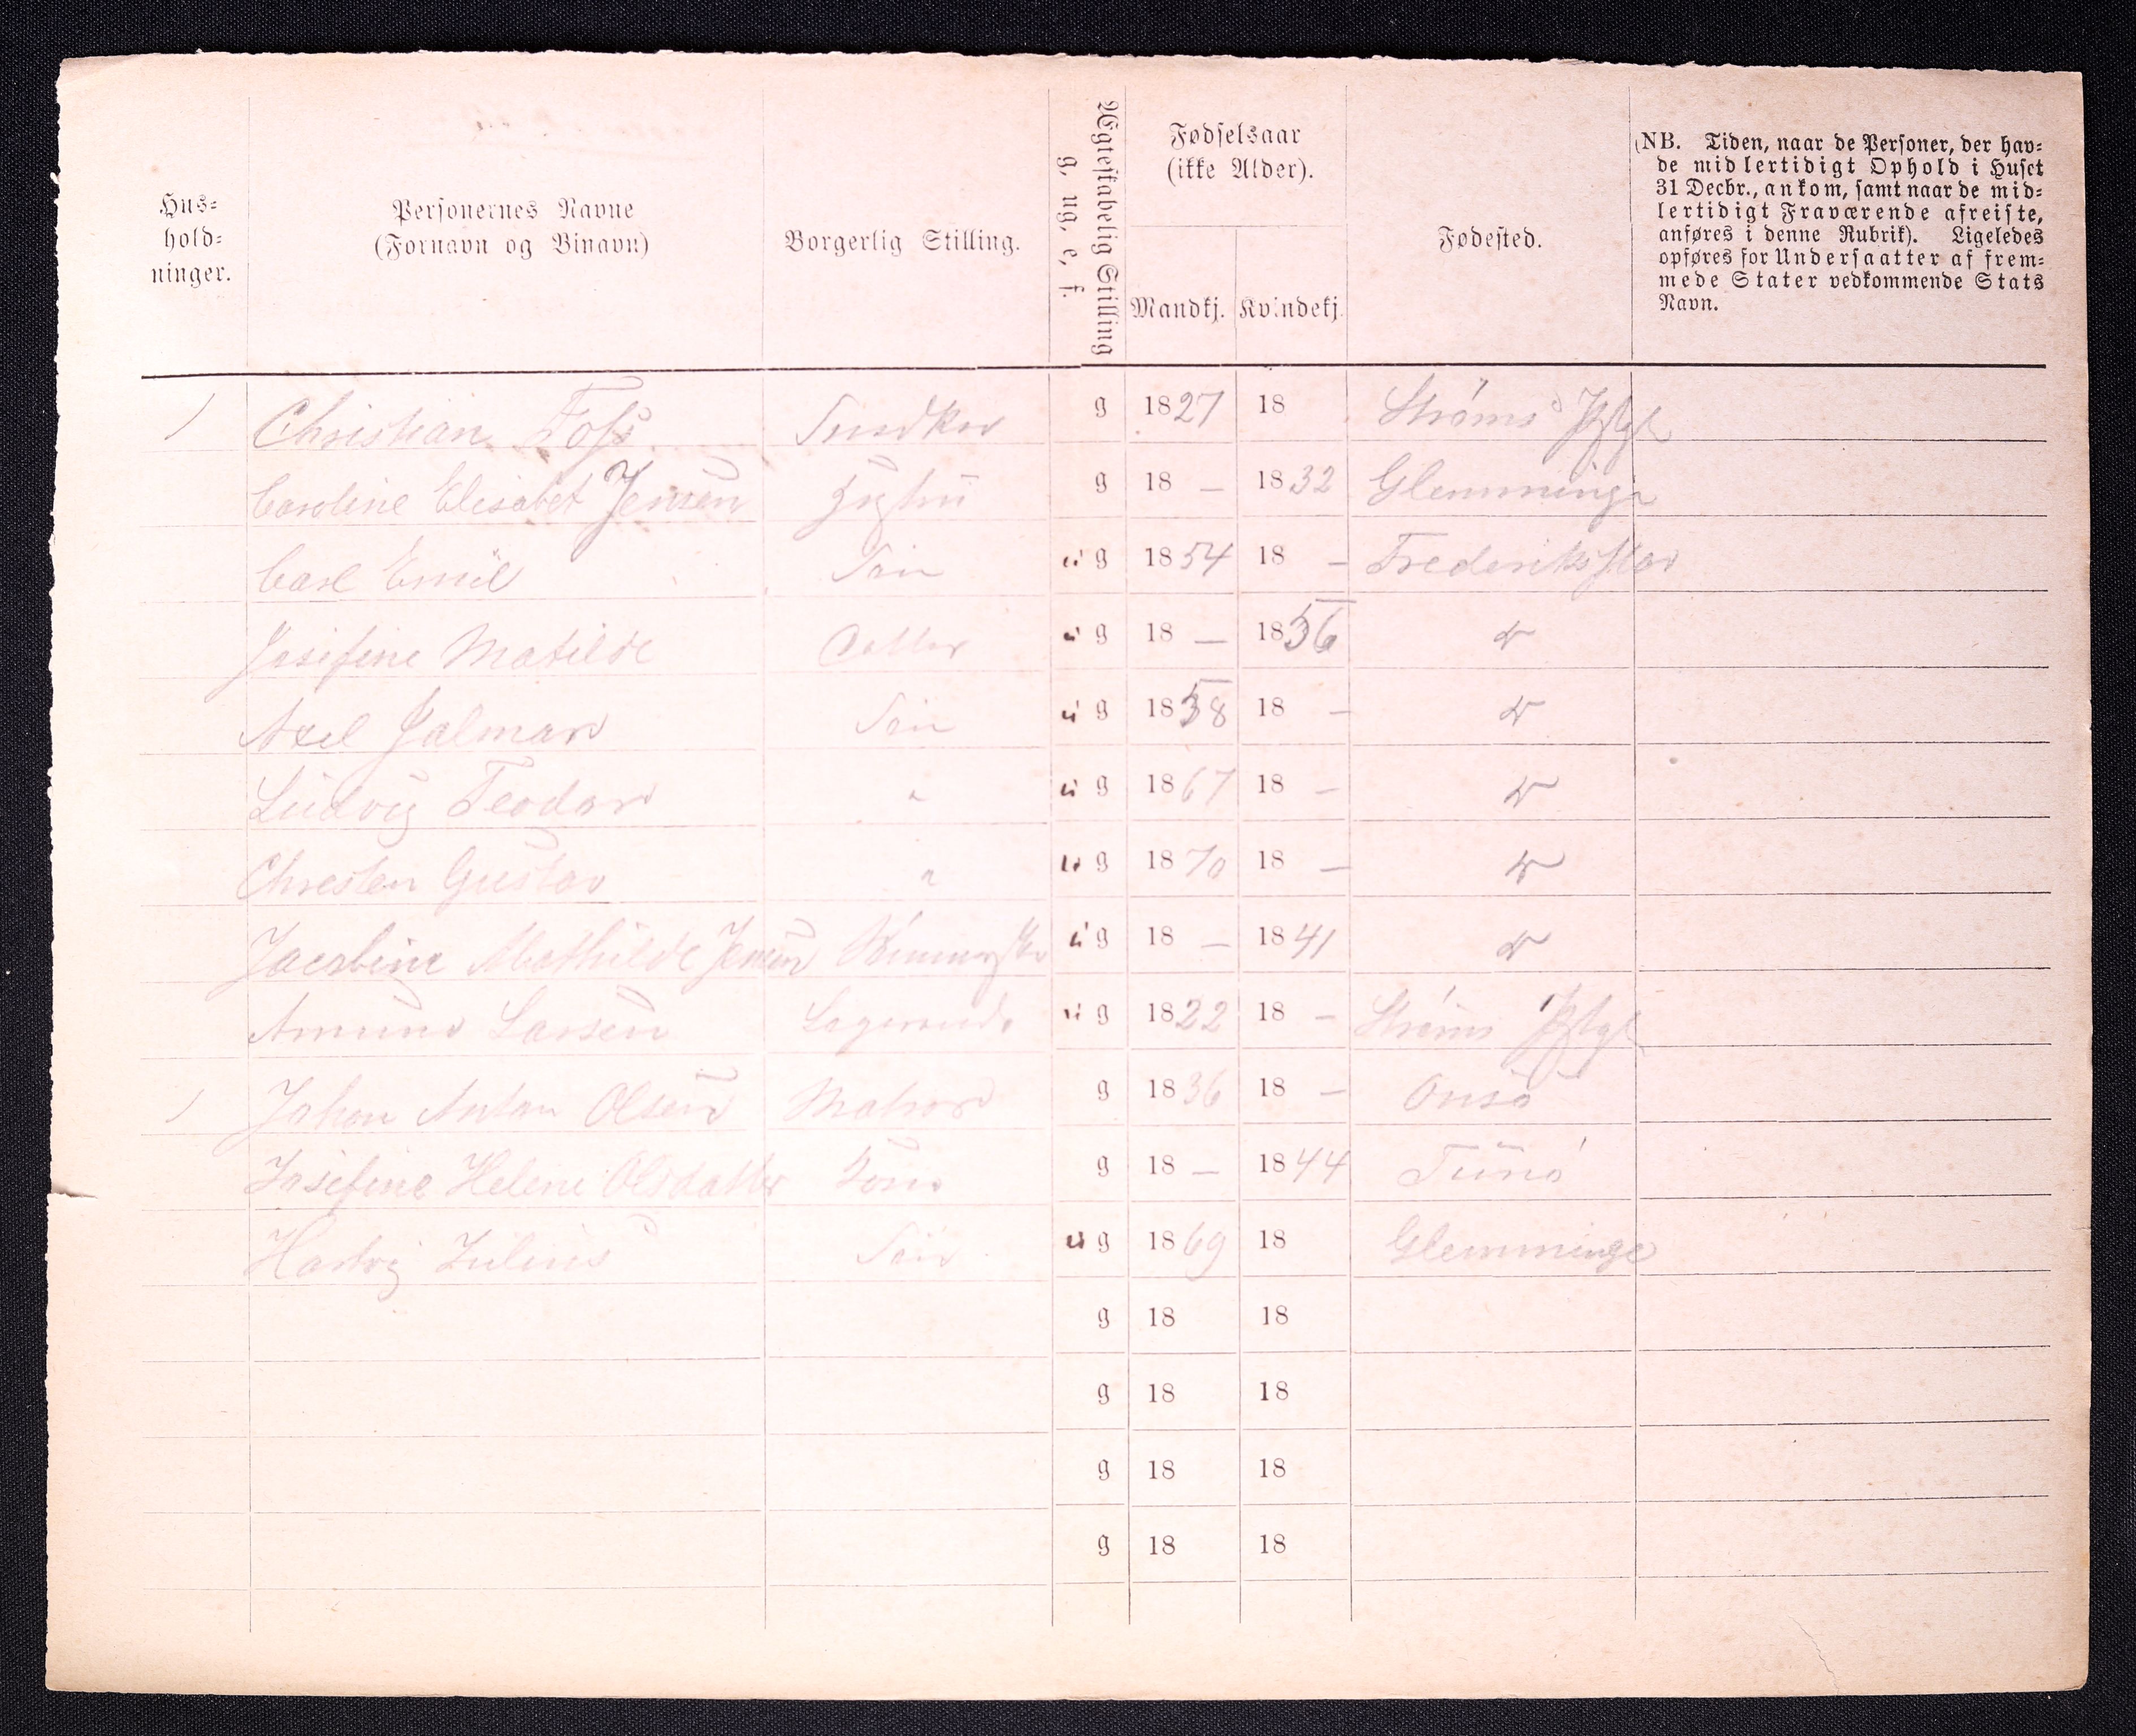 Hus-
hold-
ninger.
Personernes Navne
(Fornavn og Binavn)
Borgerlig Stilling.
Ægteskabelig Stilling
g, ug, e, f.
Fødselsaar
(ikke Alder).
Mandkj. Kvindekj.
Fødested.
(NB. Tiden, naar de Personer, der hav-
de midlertidigt Ophold i Huset
31 Decbr., ankom, samt naar de mid-
lertidigt Fraværende afreiste,
anføres i denne Rubrik). Ligeledes
opføres for Undersaatter af frem-
mede Stater vedkommende Stats
Navn.
1 Christian Foss Snedker g 1827 18 Strøms
Caroline Elisabet Jensen g 18 — 1832 Glemminge
Carl Emil Søn ug 1854 18 — Frederiksstad
Josifine Matilde Datter ug 18 — 1856
Axel Jalmar Søn ug 1858 18 —
Ludvig Teodor " ug 1867 18 —
Chresten Gustav " ug 1870 18 —
Jacobine Mathilde Jensen ug 18 — 1841
Amund Larsen ug 1822 18 — Strøms
1 Johan Anton Olsen Matros g 1836 18 — Onsø
Josefine Helene Olsdatter Kone g 18 — 1844 Tunø
Hartvig Julius Søn ug 1869 18 Glemminge
g 18 18
g 18 18
g 18 18
g 18 18